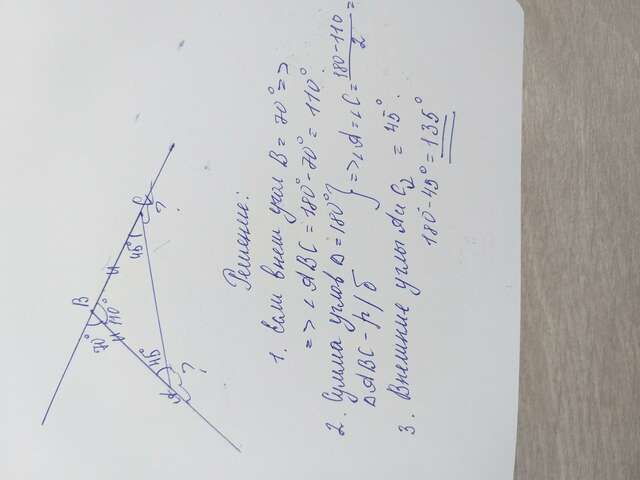 70°
B
110°
45°
C
?
45°
A
?
Решение:
1. Если внеш угол B = 70° =>
=> ∠ABC = 180° - 70° = 110°.
2. Сумма углов Δ = 180° } => ∠A = ∠C = (180 - 110)/2 =
ΔABC - р/б
= 45°.
3. Внешние углы A и C
180° - 45° = 135°